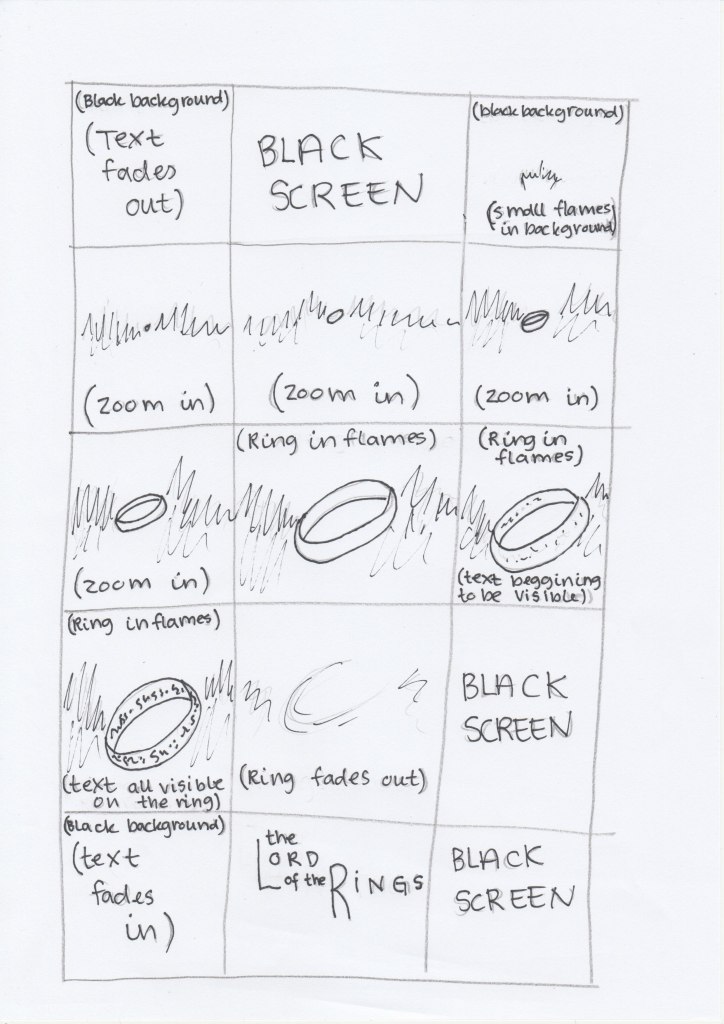 (Black background)
(Text
fades
out)
BLACK
SCREEN
(black background)
(small flames
in background)
(zoom in)
(zoom in)
(zoom in)
(zoom in)
(Ring in flames)
(Ring in
flames)
(text beggining
to be visible)
(Ring in flames)
(text all visible
on the ring)
(Ring fades out)
BLACK
SCREEN
(Black background)
(text
fades
in)
the
LORD
of the
RiNGS
BLACK
SCREEN